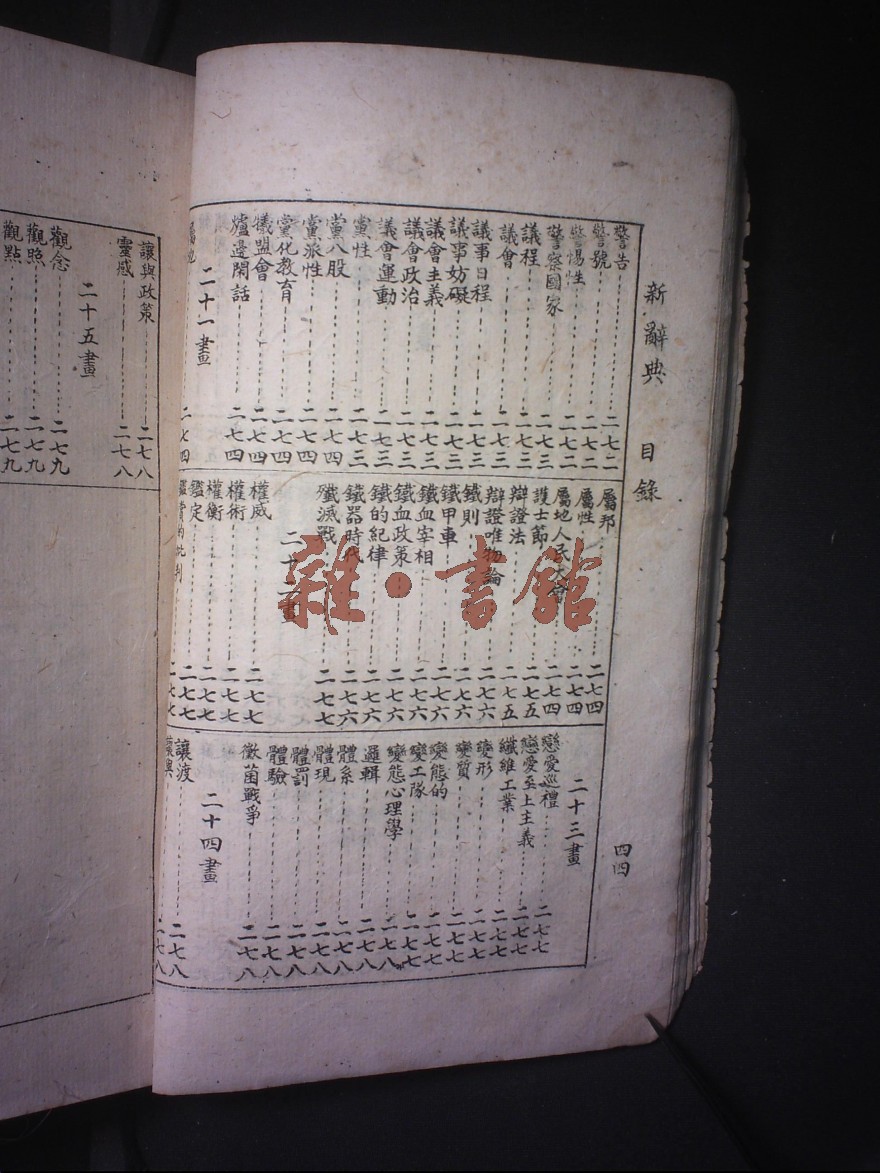 新辭典 目錄
四四
警告……二七二
警號……二七二
警惕性……二七二
警察國家……二七三
議程……二七三
議會……二七三
議事日程……二七三
議事妨礙……二七三
議會主義……二七三
議會政治……二七三
議會運動……二七三
黨性……二七三
黨八股……二七四
黨派性……二七四
黨化教育……二七四
犧盟會……二七四
爐邊閑話……二七四
二十一畫
屬地……二七四
屬邦……二七四
屬性……二七四
屬地人民大會……二七四
護士節……二七五
辯證法……二七五
辯證唯物論……二七六
鐵則……二七六
鐵甲車……二七六
鐵血宰相……二七六
鐵血政策……二七六
鐵的紀律……二七六
鐵器時代……二七六
殲滅戰……二七七
二十二畫
權威……二七七
權術……二七七
權衡……二七七
鑑定……二七七
鑑賞的批判……二七七
二十三畫
戀愛巡禮……二七七
戀愛至上主義……二七七
纖維工業……二七七
變形……二七七
變質……二七七
變態的……二七七
變工隊……二七七
變態心理學……二七八
邏輯……二七八
體系……二七八
體現……二七八
體罰……二七八
體驗……二七八
黴菌戰爭……二七八
二十四畫
讓渡……二七八
讓與……二七八
讓與政策……二七八
靈感……二七八
二十五畫
觀念……二七九
觀照……二七九
觀點……二七九
雜·書館